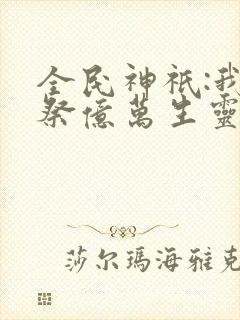 全民神祇:我
祭億萬生靈
莎尔瑪海雅克